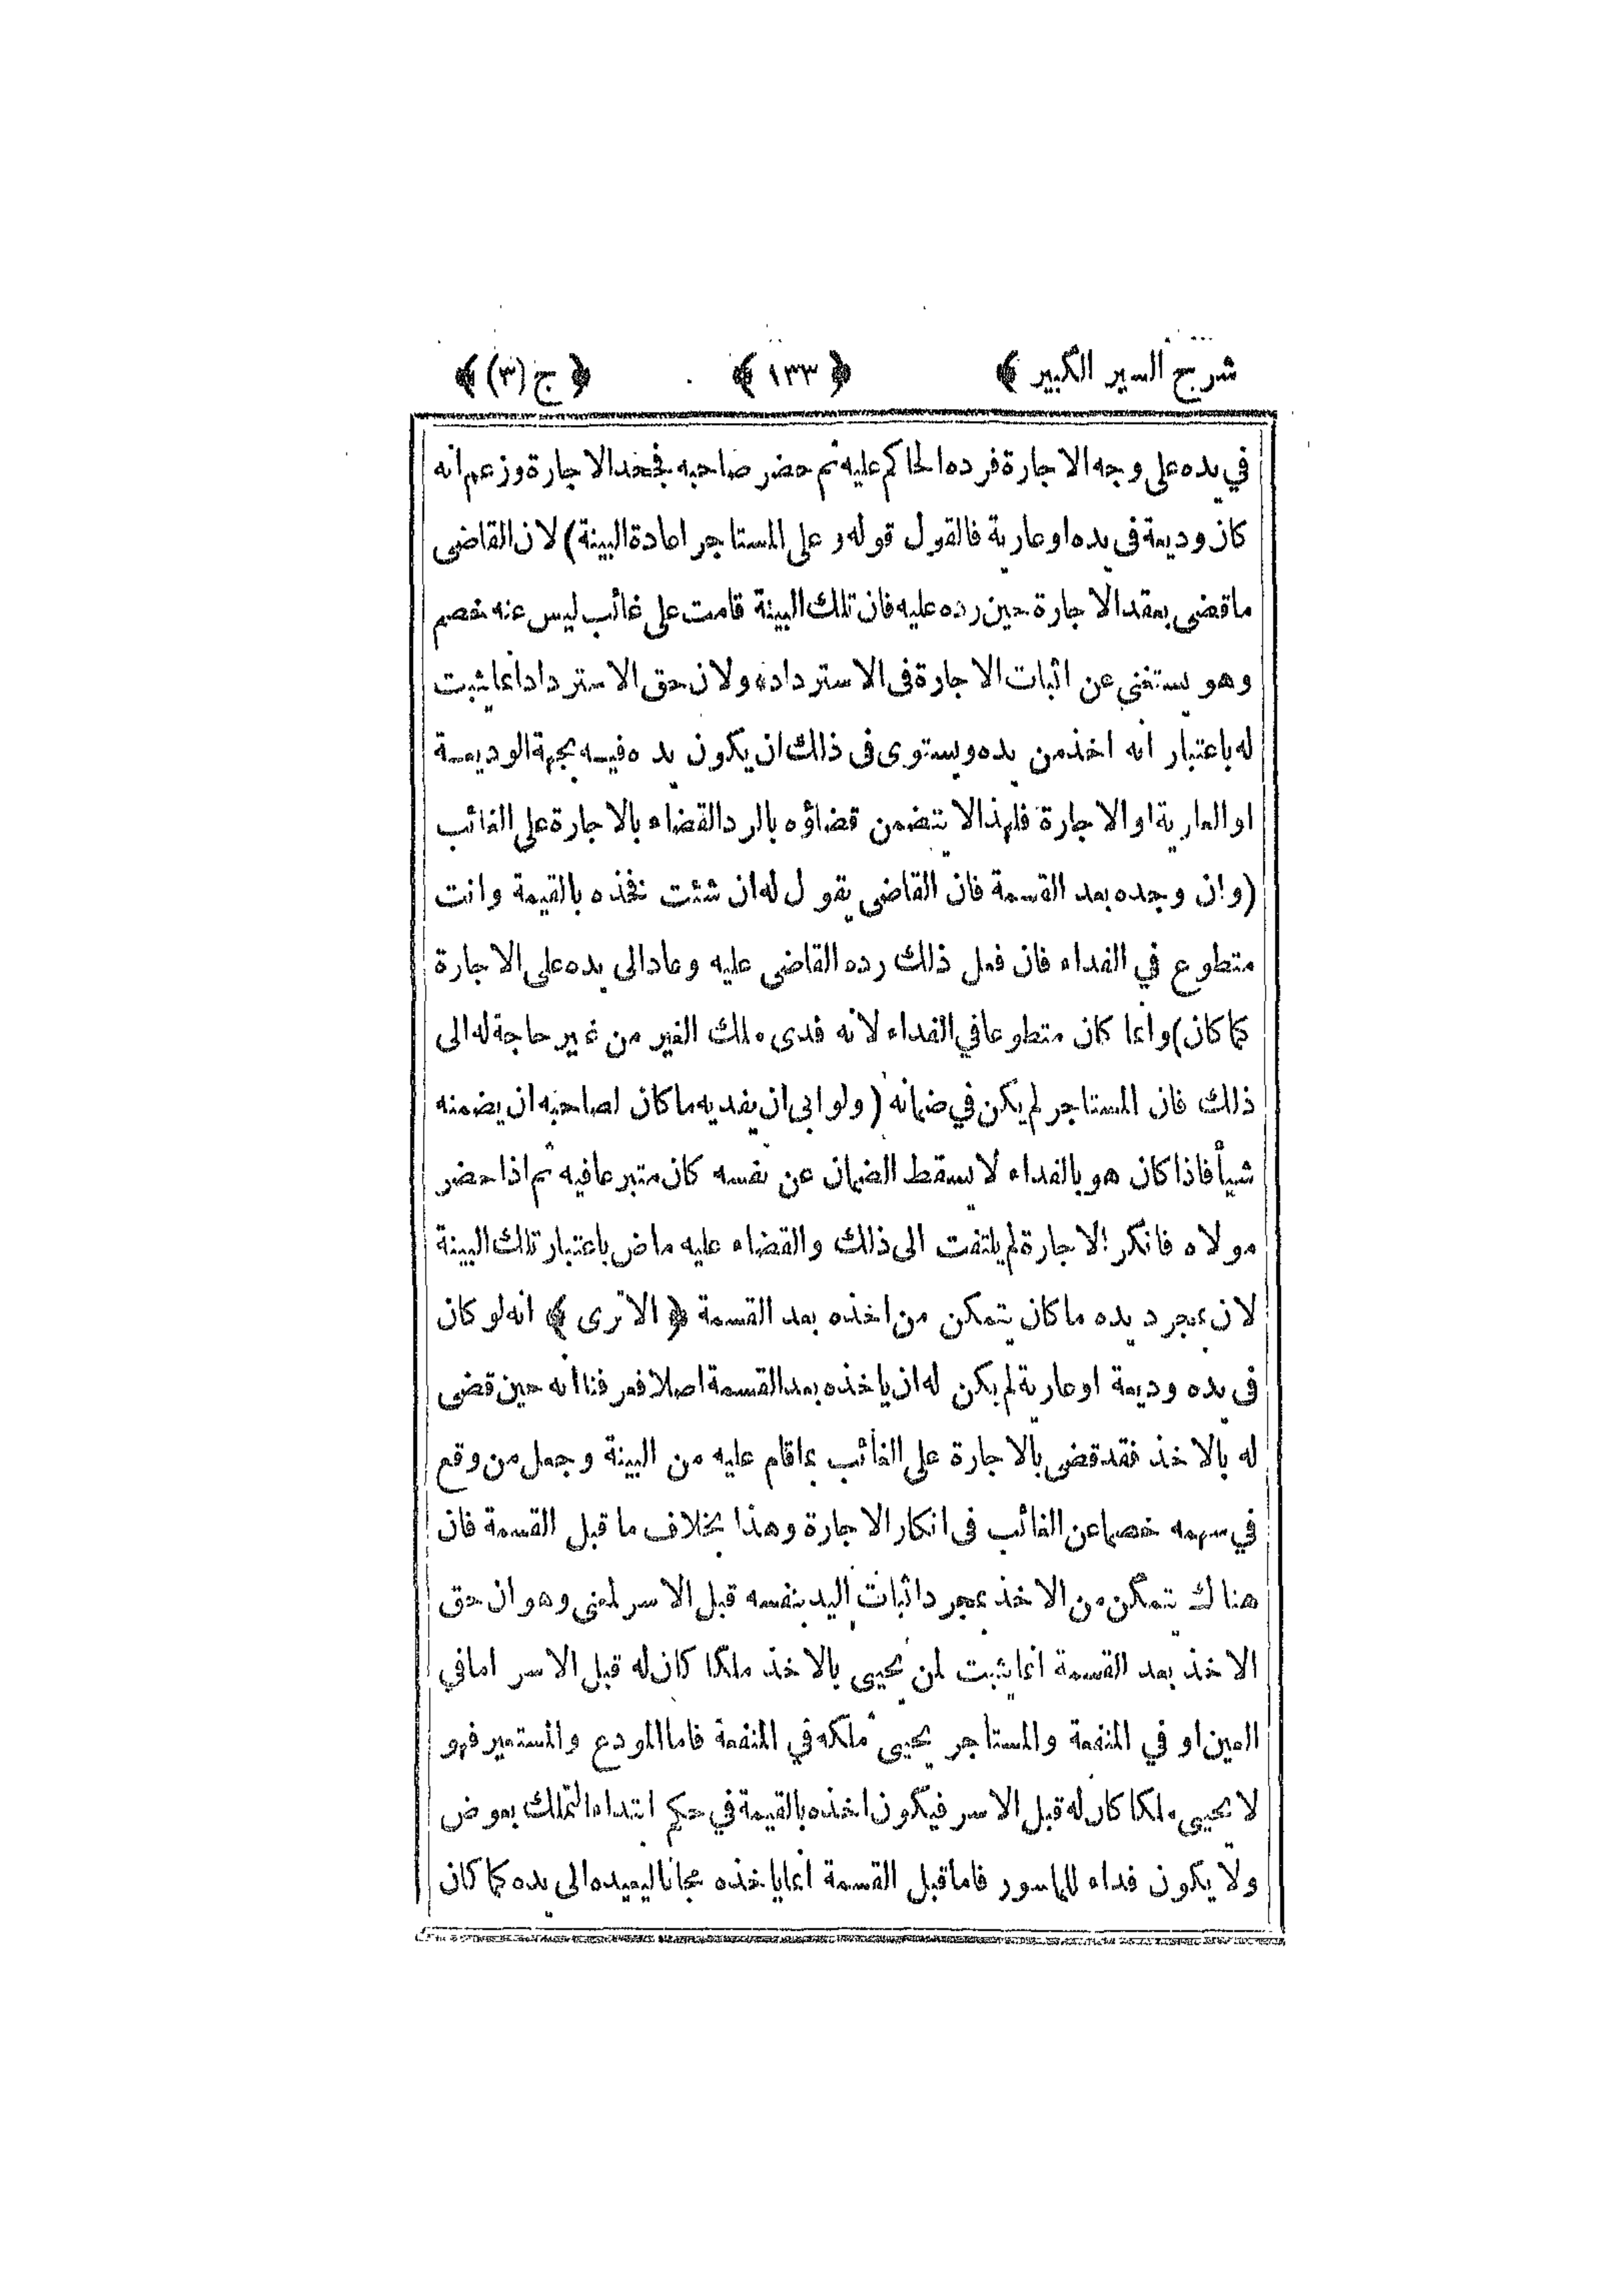 شرح السير الكبير ﴾ ﴿ ١٣٣ ﴾ ﴿ ج (٣) ﴾
في يده على وجه الاجارة فرده الحاكم عليه ثم حضر صاحبه فجحد الاجارة وزعم انه
كان وديعة فى يده او عارية فالقول قوله و على المستاجر اعادة البينة) لان القاضى
ما قضى بعقد الاجارة حين رده عليه فان تلك البينة قامت على غائب ليس عنه خصم
وهو يستغنى عن اثبات الاجارة فى الاسترداد ولان حق الاسترداد انما يثبت
له باعتبار انه اخذ من يده ويستوى فى ذلك ان يكون يده فيه بجهة الوديعة
او العارية او الاجارة فلهذا لا يتضمن قضاؤه بالرد القضاء بالاجارة على الغائب
(وان وجده بعد القسمة فان القاضى يقول له ان شئت فخذه بالقيمة وانت
متطوع في الفداء فان فعل ذلك رده القاضى عليه وعاد الى يده على الاجارة
كما كان) وانما كان متطوعا في الفداء لانه فدى ملك الغير من غير حاجة له الى
ذلك فان المستاجر لم يكن في ضمانه (ولو ابى ان يفديه ما كان لصاحبه ان يضمنه
شيأ فاذا كان هو بالفداء لا يسقط الضمان عن نفسه كان متبرعا فيه ثم اذا حضر
مولاه فانكر الاجارة لم يلتفت الى ذلك والقضاء عليه ماض باعتبار تلك البينة
لان بمجرد يده ما كان يتمكن من اخذه بعد القسمة ﴿ الا ترى ﴾ انه لو كان
فى يده وديعة او عارية لم يكن له ان ياخذه بعد القسمة اصلا فعرفنا انه حين قضى
له بالاخذ فقد قضى بالاجارة على الغائب بما قام عليه من البينة وجعل من وقع
في سهمه خصما عن الغائب فى انكار الاجارة وهذا بخلاف ما قبل القسمة فان
هناك يتمكن من الاخذ بمجرد اثبات اليد بنفسه قبل الاسر لمعنى وهو ان حق
الاخذ بعد القسمة انما يثبت لمن يحيى بالاخذ ملكا كان له قبل الاسر اما في
العين او في المنفعة والمستاجر يحيى ملكه في المنفعة فاما المودع والمستعير فهو
لا يحيى ملكا كان له قبل الاسر فيكون اخذه بالقيمة في حكم ابتداء التملك بعوض
ولا يكون فداء للماسور فاما قبل القسمة انما ياخذه مجانا ليعيده الى يده كما كان